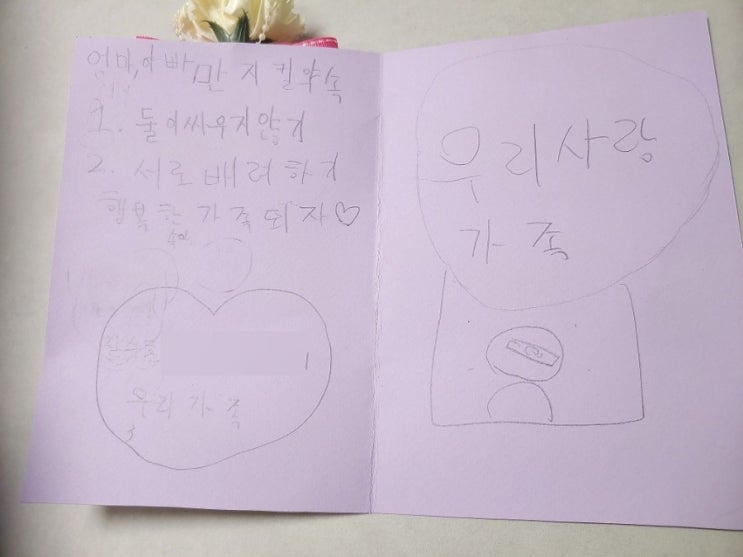 엄마,아빠,만 지킬약속
1. 둘이싸우지않기
2. 서로배려하기
행복한 가족되자♡
우리 가족
우리사랑
가족